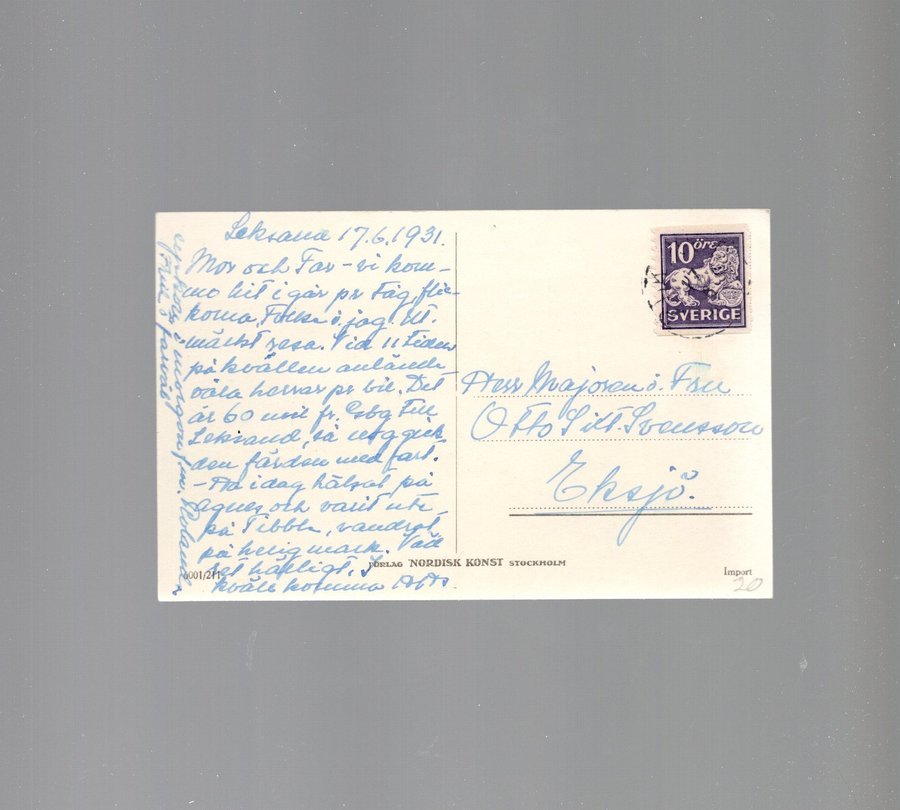 Leksand 17.6.1931.
Mor och Far - vi kom-
mo hit i går pr tåg, flic-
korna, Folke o. jag. Ut-
märkt resa. Vid 11 tiden
på kvällen anlände
våra herrar pr bil. Det
är 60 mil fr. Gbg till
Leksand, så nog gick
den färden med fart.
- Ha idag hälsat på
Agnes och varit ute
på Tibble, vandrat
på helig mark. Väd-
ret härligt. I
kväll komma
upp o. i morgon
10 öre
SVERIGE
Herr Majoren o. Fru
Otto Silf-Svensson
Eksjö.
6001/211
FÖRLAG NORDISK KONST STOCKHOLM
Import
20